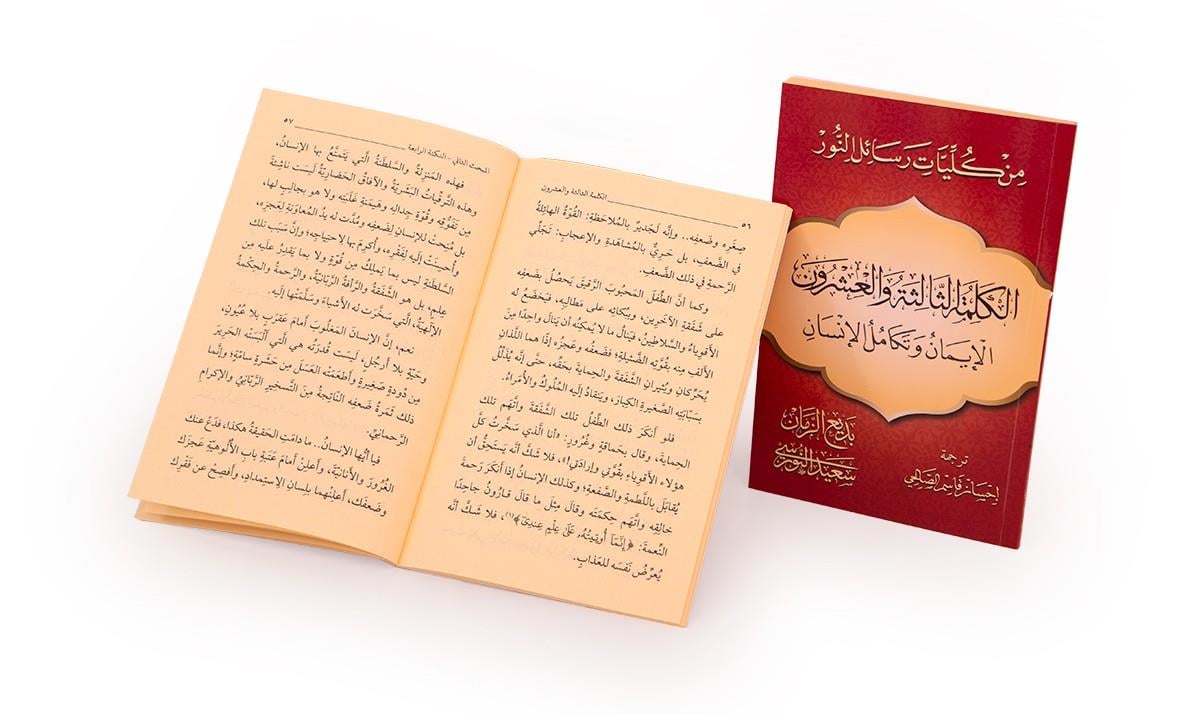 الكلمة الثالثة والعشرون
٥٦
صِغَرِه وضَعفِه.. وإنَّه لَجَديرٌ بالمُلاحَظةِ: القُوّةُ الهائلةُ
في الضَّعفِ، بل حَرِيٌّ بالمُشاهَدةِ والإعجابِ: تَجَلِّي
الرَّحمةِ في ذلك الضَّعفِ.
وكما أنَّ الطِّفلَ المَحبُوبَ الرَّقيقَ يَحصُلُ بضَعفِه
على شَفَقةِ الآخَرِين، وببُكائِه على مَطالِبِه، فيَخضَعُ له
الأقوياءُ والسَّلاطينُ، فيَنالُ ما لا يُمكِنُه أن يَنالَ واحِدًا مِنَ
الألفِ مِنه بقُوَّتِه الضَّئيلةِ؛ فضَعفُه وعَجزُه إذًا هما اللَّذانِ
يُحَرِّكانِ ويُثيرانِ الشَّفَقةَ والحِمايةَ بحَقِّه، حتَّى إنَّه يُذَلِّلُ
بسَبّابَتِه الصَّغيرةِ الكِبارَ، ويَنقادُ إليه المُلُوكُ والأُمَراءُ.
فلو أَنكَرَ ذلك الطِّفلُ تلك الشَّفَقةَ واتَّهَم تلك
الحِمايةَ، وقال بحَماقةٍ وغُرُورٍ: «أنا الَّذي سَخَّرتُ كلَّ
هؤلاء الأقوياءِ بقُوَّتي وإرادَتي!»، فلا شَكَّ أنَّه يَستَحِقُّ أن
يُقابَلَ باللَّطمةِ والصَّفعةِ؛ وكذلك الإنسانُ إذا أَنكَرَ رَحمةَ
خالِقِه واتَّهَم حِكمَتَه وقال مِثلَ ما قال قارُونُ جاحِدًا
النِّعمةَ: ﴿إِنَّمَآ أُوتِيتُهُۥ عَلَىٰ عِلْمٍ عِندِىٓ﴾(١)، فلا شَكَّ أنَّه
يُعرِّضُ نَفسَه للعَذابِ.
المبحث الثاني - النكتة الرابعة
٥٧
فهذه المَنزِلةُ والسَّلطَنةُ الَّتي يَتَمتَّعُ بها الإنسانُ،
وهذه التَّرقِّياتُ البَشَريّةُ والآفاقُ الحَضارِيّةُ لَيسَت ناشِئةً
مِن تَفَوُّقِه وقُوّةِ جِدالِه وهَيمَنةِ غَلَبَتِه ولا هو بجالِبٍ لها،
بل مُنِحَت للإنسانِ لِضَعفِه ومُدَّت له يدُ المُعاوَنةِ لِعَجزِه،
وأُحسِنَت إليه لِفَقرِه، وأُكرِمَ بها لاحتِياجِه؛ وإنَّ سَبَب تلك
السَّلطَنةِ ليس بما يَملِكُ مِن قُوّةٍ ولا بما يَقدِرُ عليه مِن
عِلمٍ، بل هو الشَّفَقةُ والرَّأفةُ الرَّبّانيّةُ، والرَّحمةُ والحِكمةُ
الإلٰهيّةُ، الَّتي سَخَّرَت له الأشياءَ وسَلَّمَتْها إليه.
نعم، إنَّ الإنسانَ المَغلُوبَ أمامَ عَقرَبٍ بلا عُيُونٍ،
وحَيّةٍ بلا أَرجُلٍ، لَيسَت قُدرَتُه هي الَّتي أَلبَسَتْه الحَرِيرَ
مِن دُودةٍ صَغيرةٍ وأَطعَمَتْه العَسَلَ مِن حَشَرةٍ سامّةٍ؛ وإنَّما
ذلك ثَمَرةُ ضَعفِه النّاتِجةُ مِنَ التَّسخيرِ الرَّبّانِيِّ والإكرامِ
الرَّحمانِيِّ.
فيا أيُّها الإنسانُ.. ما دامَتِ الحَقيقةُ هكذا، فدَعْ عنك
الغُرُورَ والأنانيّةَ، وأَعلِنْ أمامَ عَتَبةِ بابِ الأُلُوهيّةِ عَجزَك
وضَعفَك، أَعلِنْهما بلِسانِ الاستِمدادِ، وأَفصِحْ عن فَقرِك
مِنْ كُلِّيَّاتِ رَسَائِلِ النُّورْ
الكَلِمَةُ الثَّالِثَةُ وَالْعِشْرُونَ
الإِيمَانُ وَتَكَامُلُ الإِنْسَانِ
بديع الزمان
سعيد النورسي
ترجمة
إحسان قاسم الصالحي